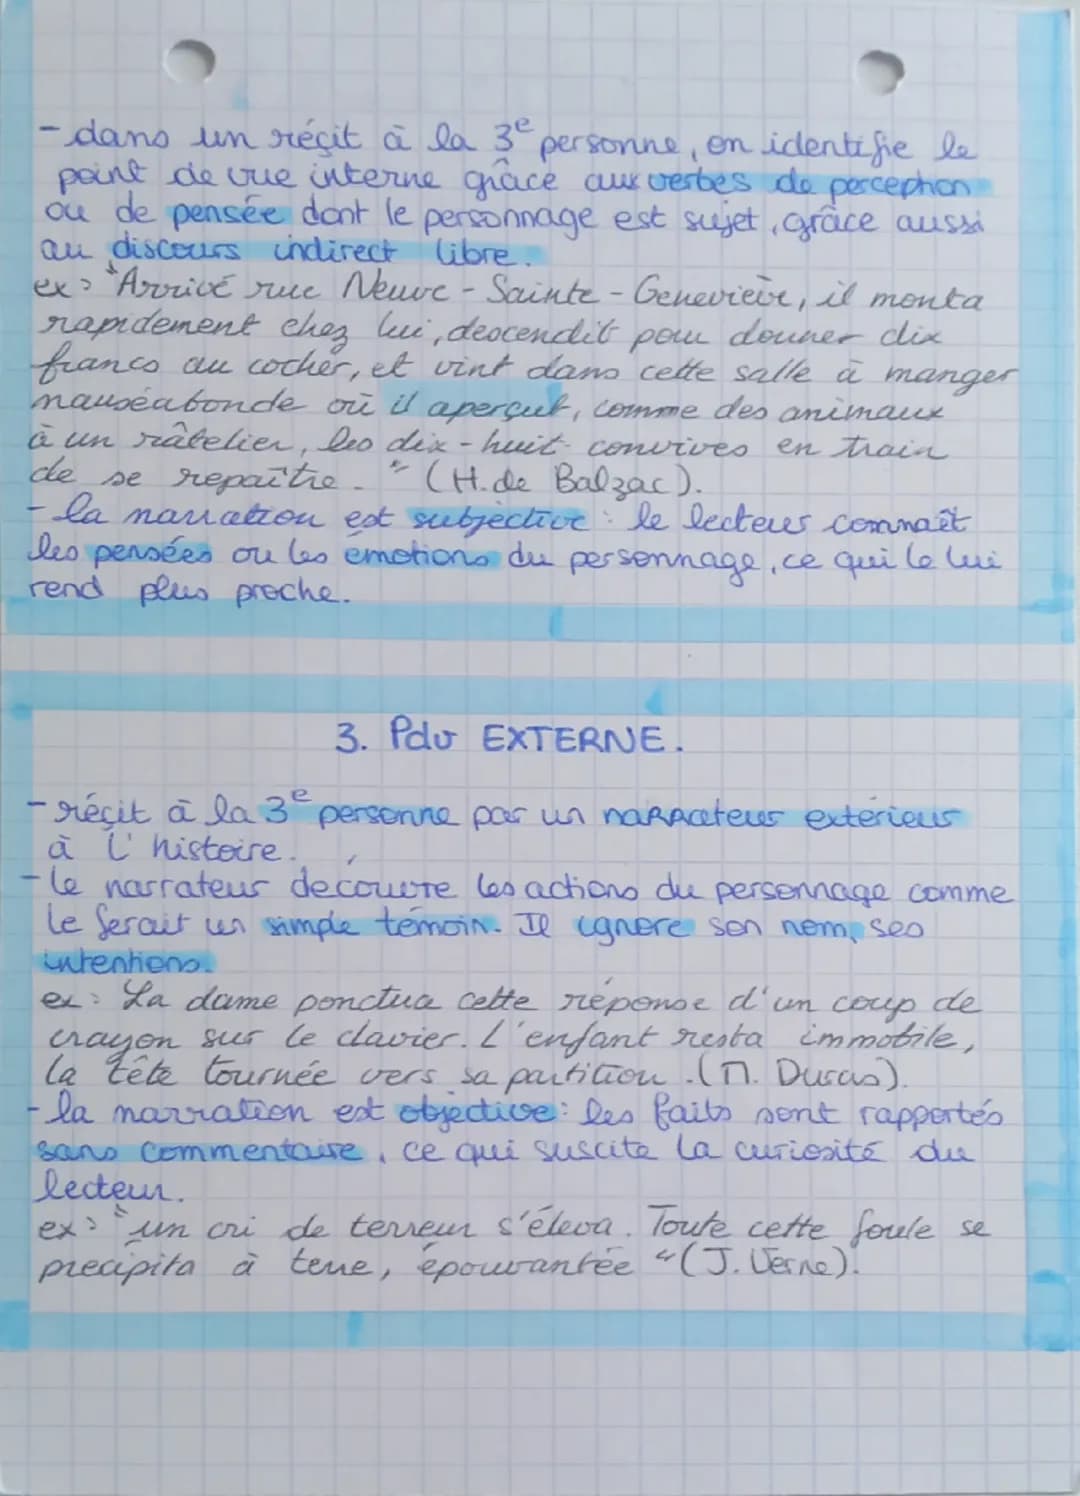 - dans un récit à la 3e personne, on identifie le
point de vue interne grâce aux verbes de perception
ou de pensée dont le personnage est sujet, grâce aussi
au discours indirect libre.
ex : "Arrivé rue Neuve-Sainte-Geneviève, il monta
rapidement chez lui, descendit pour donner dix
francs au cocher, et vint dans cette salle à manger
nauséabonde où il aperçut, comme des animaux
à un râtelier, les dix-huit convives en train
de se repaître." (H. de Balzac).
- la narration est subjective : le lecteur connaît
les pensées ou les émotions du personnage, ce qui le lui
rend plus proche.
3. Pdv EXTERNE.
- récit à la 3e personne par un narrateur extérieur
à l'histoire.
- le narrateur découvre les actions du personnage comme
le ferait un simple témoin. Il ignore son nom, ses
intentions.
ex : La dame ponctua cette réponse d'un coup de
crayon sur le clavier. L'enfant resta immobile,
la tête tournée vers sa partition. (M. Duras).
- la narration est objective : les faits sont rapportés
sans commentaire, ce qui suscite la curiosité du
lecteur.
ex : "un cri de terreur s'éleva. Toute cette foule se
précipita à terre, épouvantée" (J. Verne).